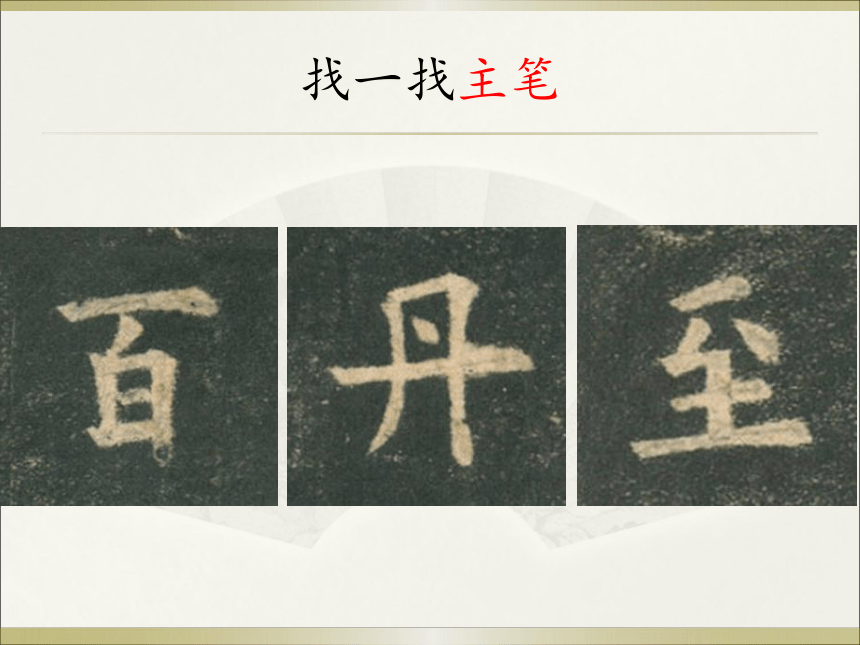 找一找主笔
百 丹 至